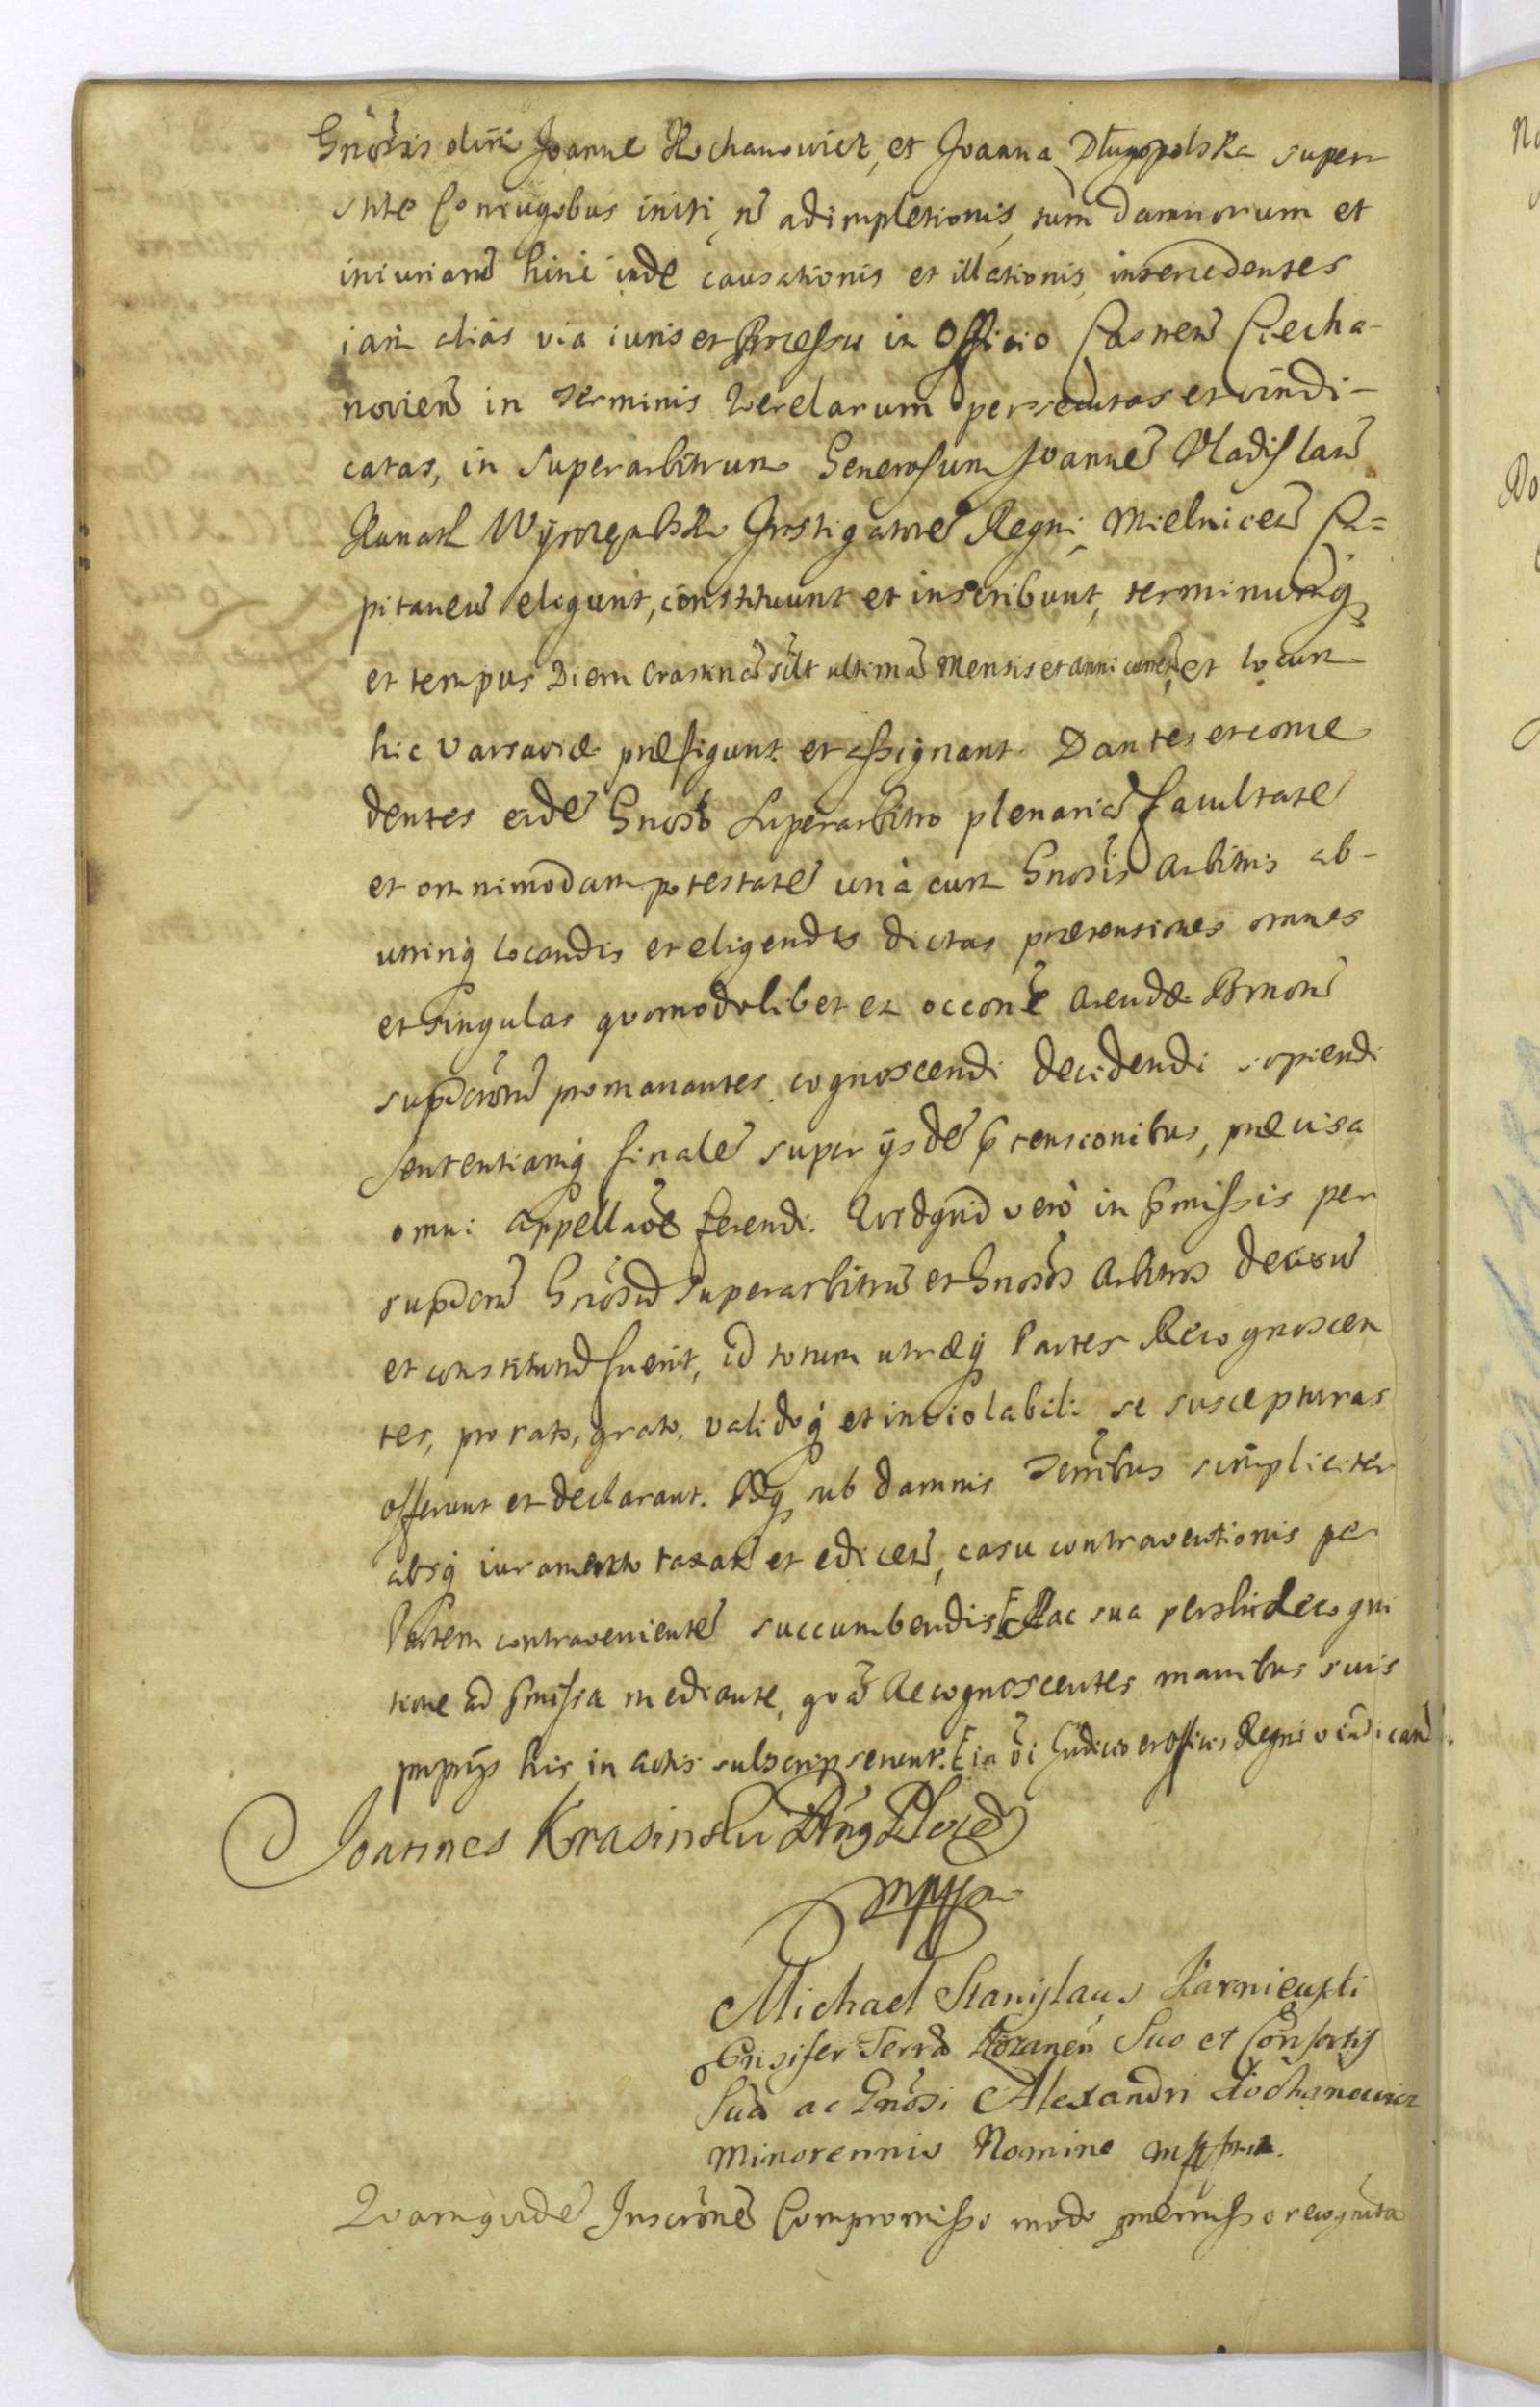 Gnosis olim Joanne Kochanowicz, et Joanna Długopolska super
stite Coniugibus initi, nō adimpletionis, tum damnorum et
iniuriarū hinc inde causationis et illationis intercedentes
iam alias via iuris et Processu in Officio Casnen̄ Ciecha-
novien̄ in terminis Querelarum persecutas et vindi-
catas, in Superarbitrum Generosum Joannē Vladislaū
Kunath Wyrozęmbski Instigatorē Regni, Mielnicen̄ Ca=
pitaneū eligunt, constituunt et inscribunt, terminumq̨
et tempus Diem crastinā scilt ultimā Mensis et anni curren̄, et locum
hic Varsaviæ præfigunt et assignant. Dantes et conce
dentes eidē Gnoso Superarbitro plenariā facultatē
et omnimodam potestatē unà cum Gnosis Arbitris ab-
utrinq̨ locandis et eligendis dictas prætensiones omnes
et singulas quomodolibet ex occone Arendæ Bonorū
supdictorū promanantes, cognoscendi decidendi sopiendi
Sententiamq̨ finalē super ijsdē ptensionibus, præcisa
omni appellaoē ferendi. Quidquid verò in pmissis per
supdictū Gnosū Superarbitrū et Gnosos Arbitros decisū
et constitutū fuerit, id totum utræq̨ Partes Recognoscen
tes, pro rato, grato, validoq̨ et inviolabili se suscepturas
offerunt et declarant. Idq̨ sub damnis terribus simpliciter
absq̨ iuramento taxan̄ et edicen̄, casu contraventionis per
Partem contravenientē succumbendis [Hac sua persli Recogni
tione ad pmissa mediante, quā Recognoscentes manibus suis
proprijs hic in actis subscripserunt. [in oi Judicio et officio Regni vindican̄.
Joannes Krasinski
mppa
Michael Stanislaus Karnieuski
Ensifer Terræ Rozanen̄ Suo et Consortis
Suæ ac Gnosi Alexandri Kochanowicz
Minorennis Nomine mppria.
Quamquidē Inscronē Compromisso modo præmisso recognita